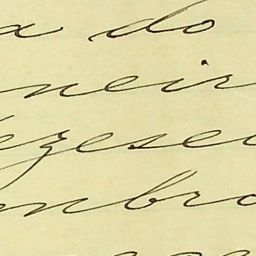 a do
neir
ezese
mbro